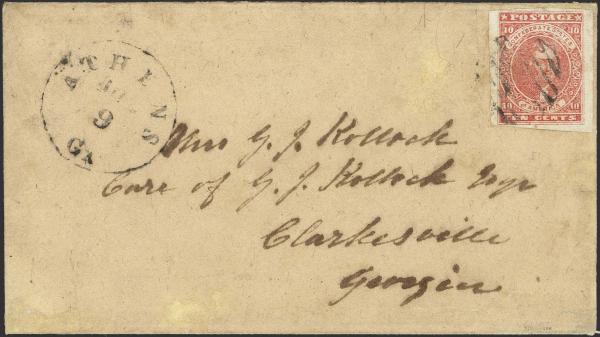 ATHENS
9
GA
POSTAGE
CONFEDERATE STATES
10 10
10 10
TEN CENTS
Mrs G. J. Kollock
Care of G. J. Kollock Esqr
Clarkesville
Georgia